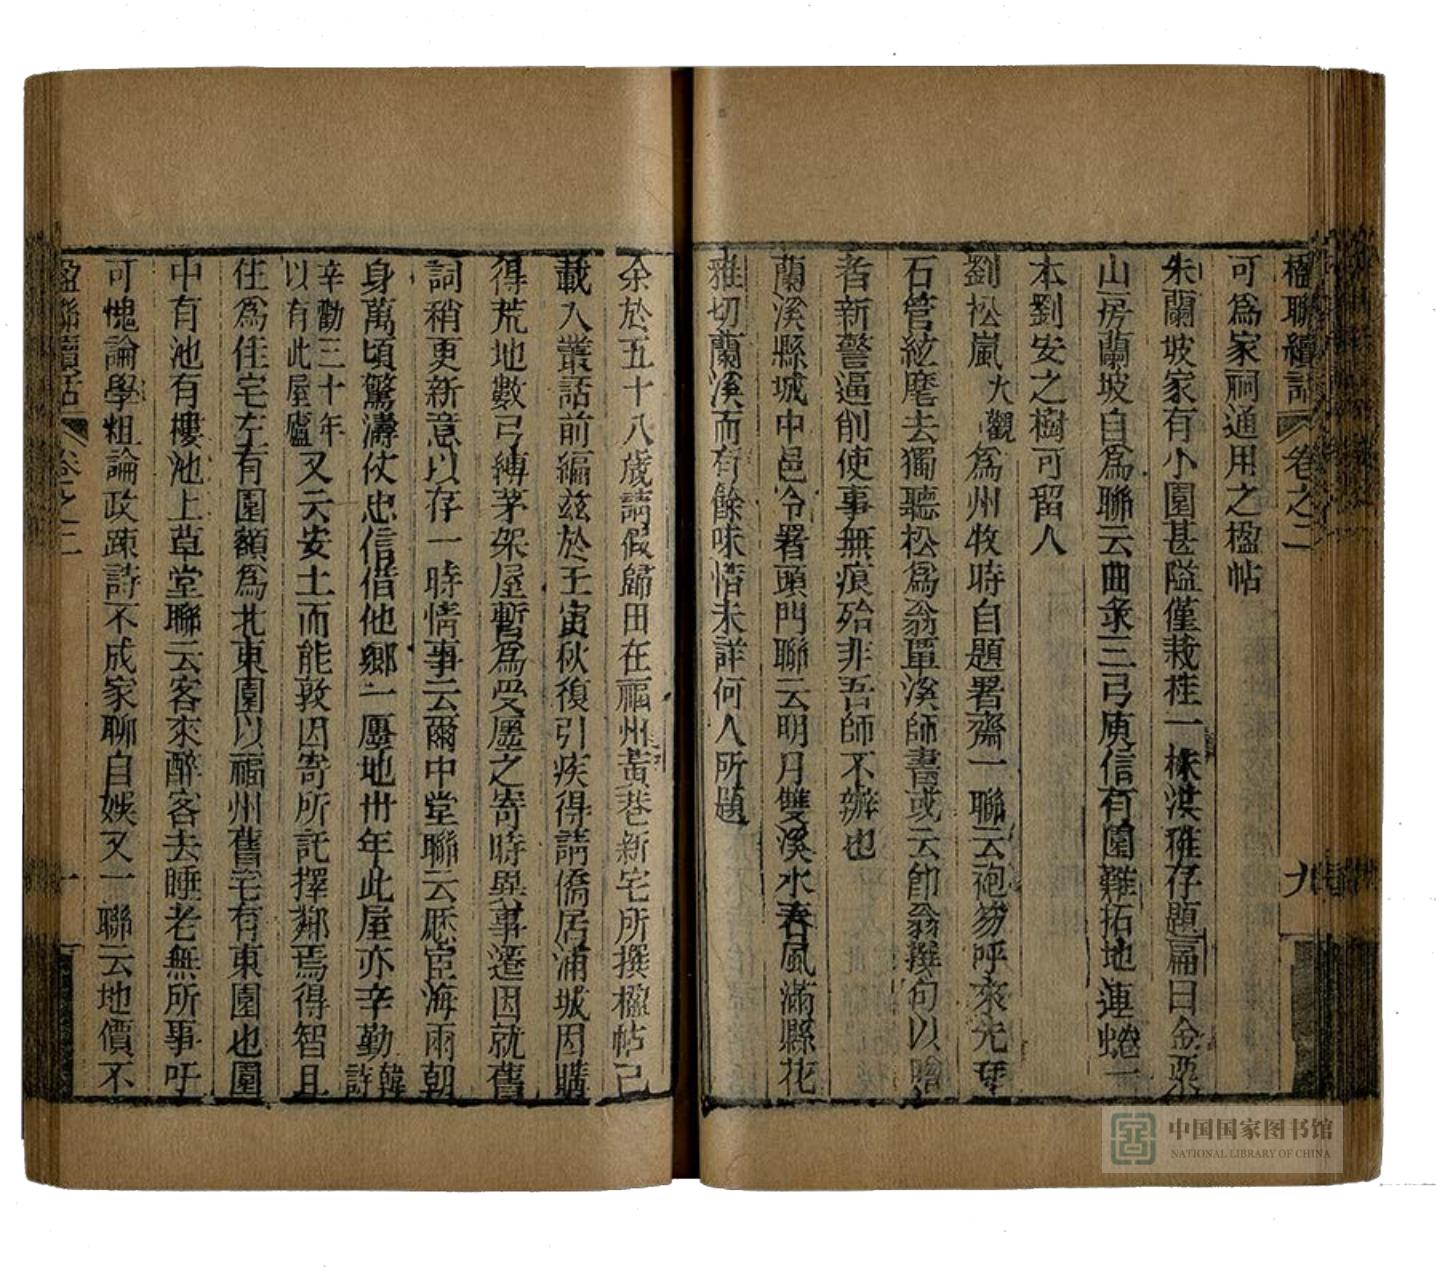 楹聯續話 卷之二 九
可為家祠通用之楹帖
朱蘭坡家有小園甚隘僅栽桂一株洪稚存題扁曰金粟
山房蘭坡自為聯云曲彔三弓庾信有園難拓地連蜷一
本劉安之樹可留人
劉松嵐大觀為州牧時自題署齋一聯云袍笏呼來先拜
石管絃磨去獨聽松為翁覃溪師書或云卽翁撰句以贈
者新警逼削使事無痕殆非吾師不辦也
蘭溪縣城中邑令署頭門聯云明月雙溪水春風滿縣花
雅切蘭溪而有餘味惜未詳何人所題
余於五十八歲請假歸田在福州黃巷新宅所撰楹帖已
載入叢話前編茲於壬寅秋復引疾得請僑居浦城因購
得荒地數弓縛茅架屋暫為受廛之寄時異事遷因就舊
詞稍更新意以存一時情事云爾中堂聯云歷宦海兩朝
身萬頃驚濤仗忠信借他鄉一廛地卅年此屋亦辛勤韓詩
辛勤三十年以有此屋廬又云安土而能敦因寄所託擇鄰焉得智且
住為佳宅左有園額為北東園以福州舊宅有東園也園
中有池有樓池上草堂聯云客來醉客去睡老無所事吁
可愧論學粗論政疎詩不成家聊自娛又一聯云地價不
楹聯續話 卷之二 十
中国国家图书馆
NATIONAL LIBRARY OF CHINA